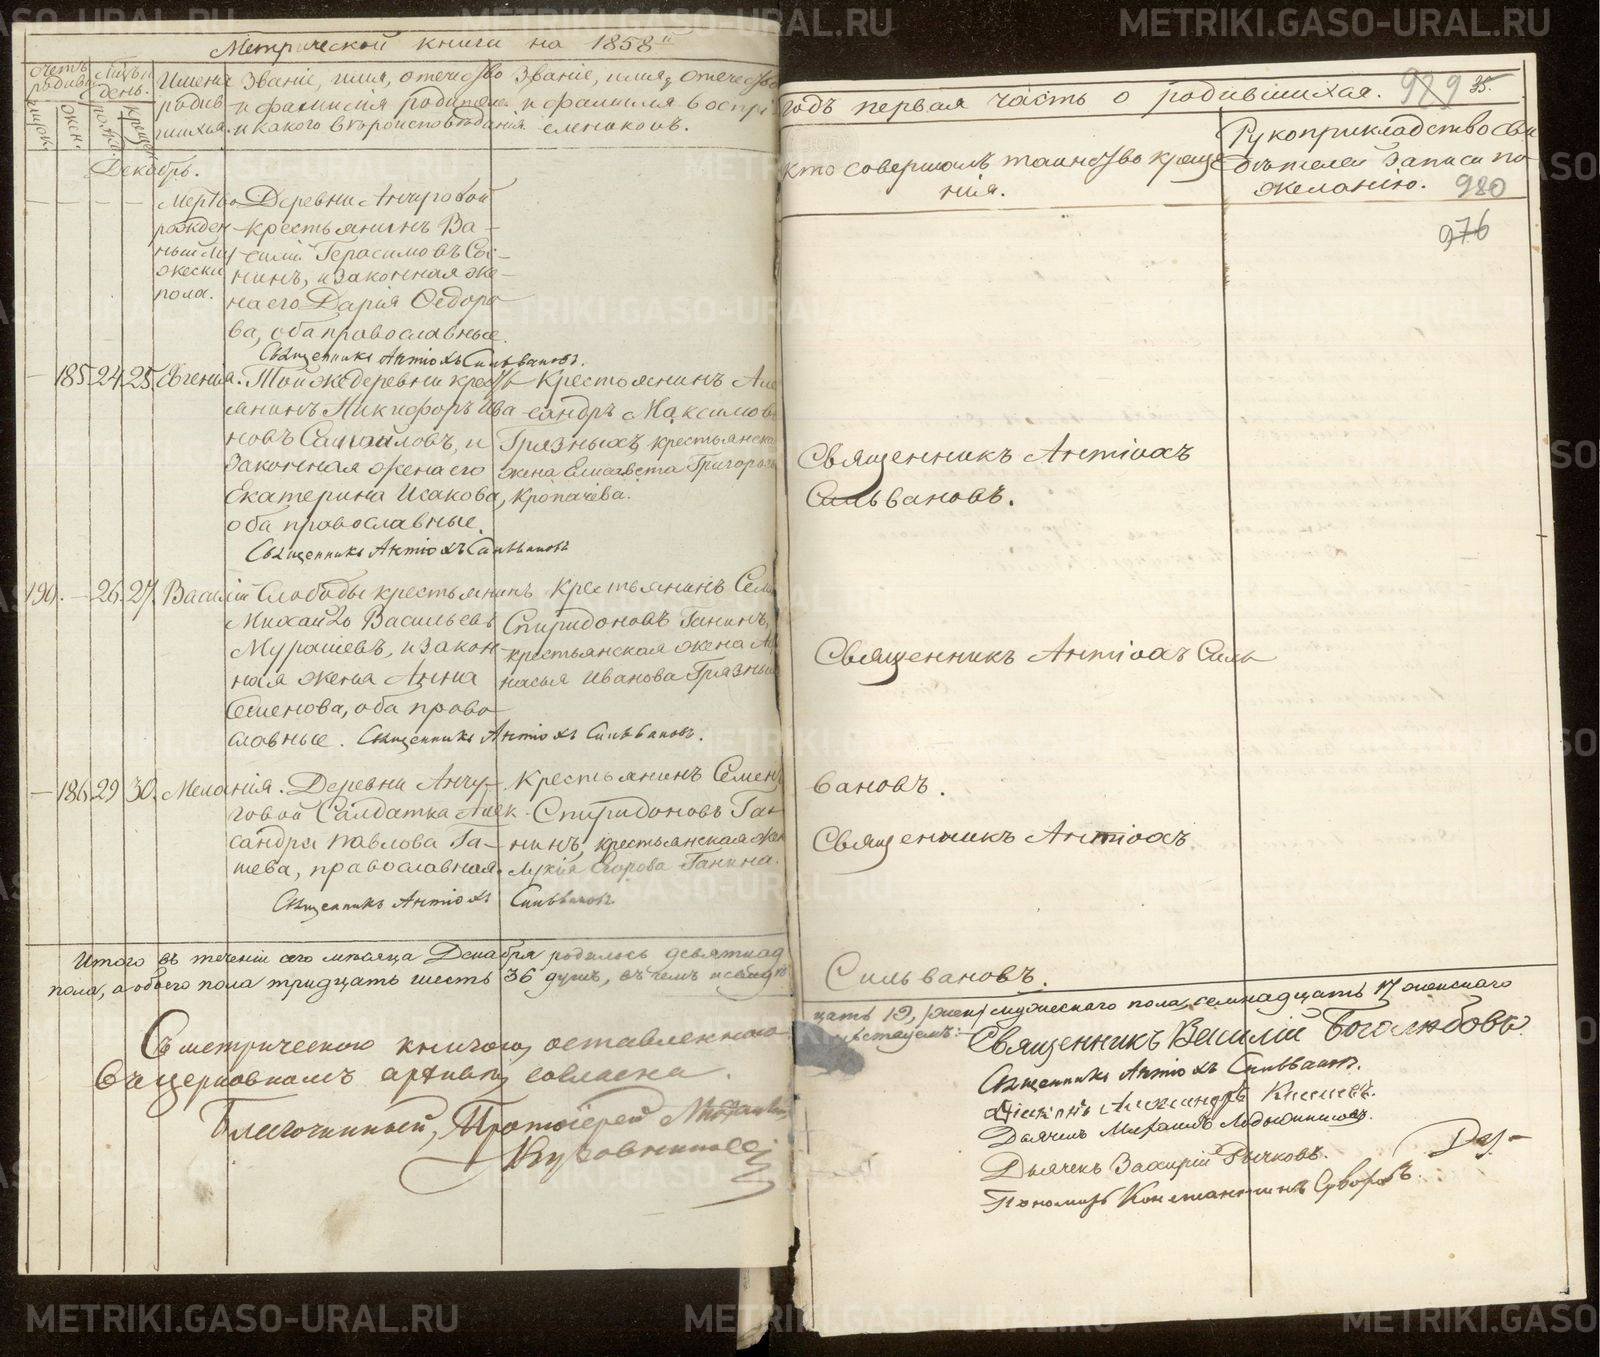 Метрической книги на 1858й
годъ первая часть о родившихся. 979 35.
счетъ родив
мужск. женск.
Мцъ и день.
рожден крещен
Имена родив шихся.
Званіе, имя, отечество и фамилія родителей и какого вѣроисповѣданія
Званіе, имя, отечество и фамилія воспріемниковъ.
Кто совершалъ таинство крещенія.
Рукоприкладство свидѣтелей записи по желанію. 980
976
Декабрь.
Мертво рожденный мужеска пола.
Деревни Анчуговой
крестьянинъ Ва-
силій Герасимовъ
нинъ, и законная же-
на его Дарія Ѳедоро
ва, оба православные.
Священникъ Антіохъ Сильвановъ.
— 185 24 25 Евгенія. Той же деревни крест
янинъ Никифоръ Ива
новъ Самойловъ, и
законная жена его
Екатерина Исакова,
оба православные.
Священникъ Антіохъ Сильвановъ
Крестьянинъ Але
сандръ Максимов
Грязныхъ, крестьянска
жена Елисавета Григорьев
Кропачева.
Священникъ Антіохъ
Сильвановъ.
190. — 26. 27. Василій Слободы крестьянинъ
Михайло Васильевъ
Мурашевъ, и закон-
ная жена Анна
Семенова, оба право
славные. Священникъ Антіохъ Сильвановъ.
Крестьянинъ Семе
Спиридоновъ Ганинъ,
крестьянская жена
насья Иванова Грязны
Священникъ Антіохъ Силь
вановъ.
— 186 29 30. Меланія. Деревни Анчу-
говой Салдатка Алек
сандра Павлова Га-
шева, православная.
Священникъ Антіохъ Сильвановъ
Крестьянинъ Семен
Спиридоновъ Га
нинъ, крестьянская жен
Лукія Егорова Ганина.
Священникъ Антіохъ
Сильвановъ.
Итого въ теченіи сего мѣсяца Декабря родилось девятнад
цать 19, мужескаго пола, семнадцать 17 женскаго
пола, а обоего пола тридцать шесть 36 душъ, въ чемъ и свидѣ
тельствуемъ:
Священникъ Василій Боголюбовъ.
Священникъ Антіохъ Сильвановъ.
Діаконъ Александръ Киселевъ.
Дьячекъ Михаилъ
Дьячекъ Захарій Рычковъ.
Пономарь Константинъ Суворовъ.
Съ метрическою книгою, оставленною
въ церковномъ архивѣ, согласна.
Благочинный, Протоіерей
METRIKI.GASO-URAL.RU